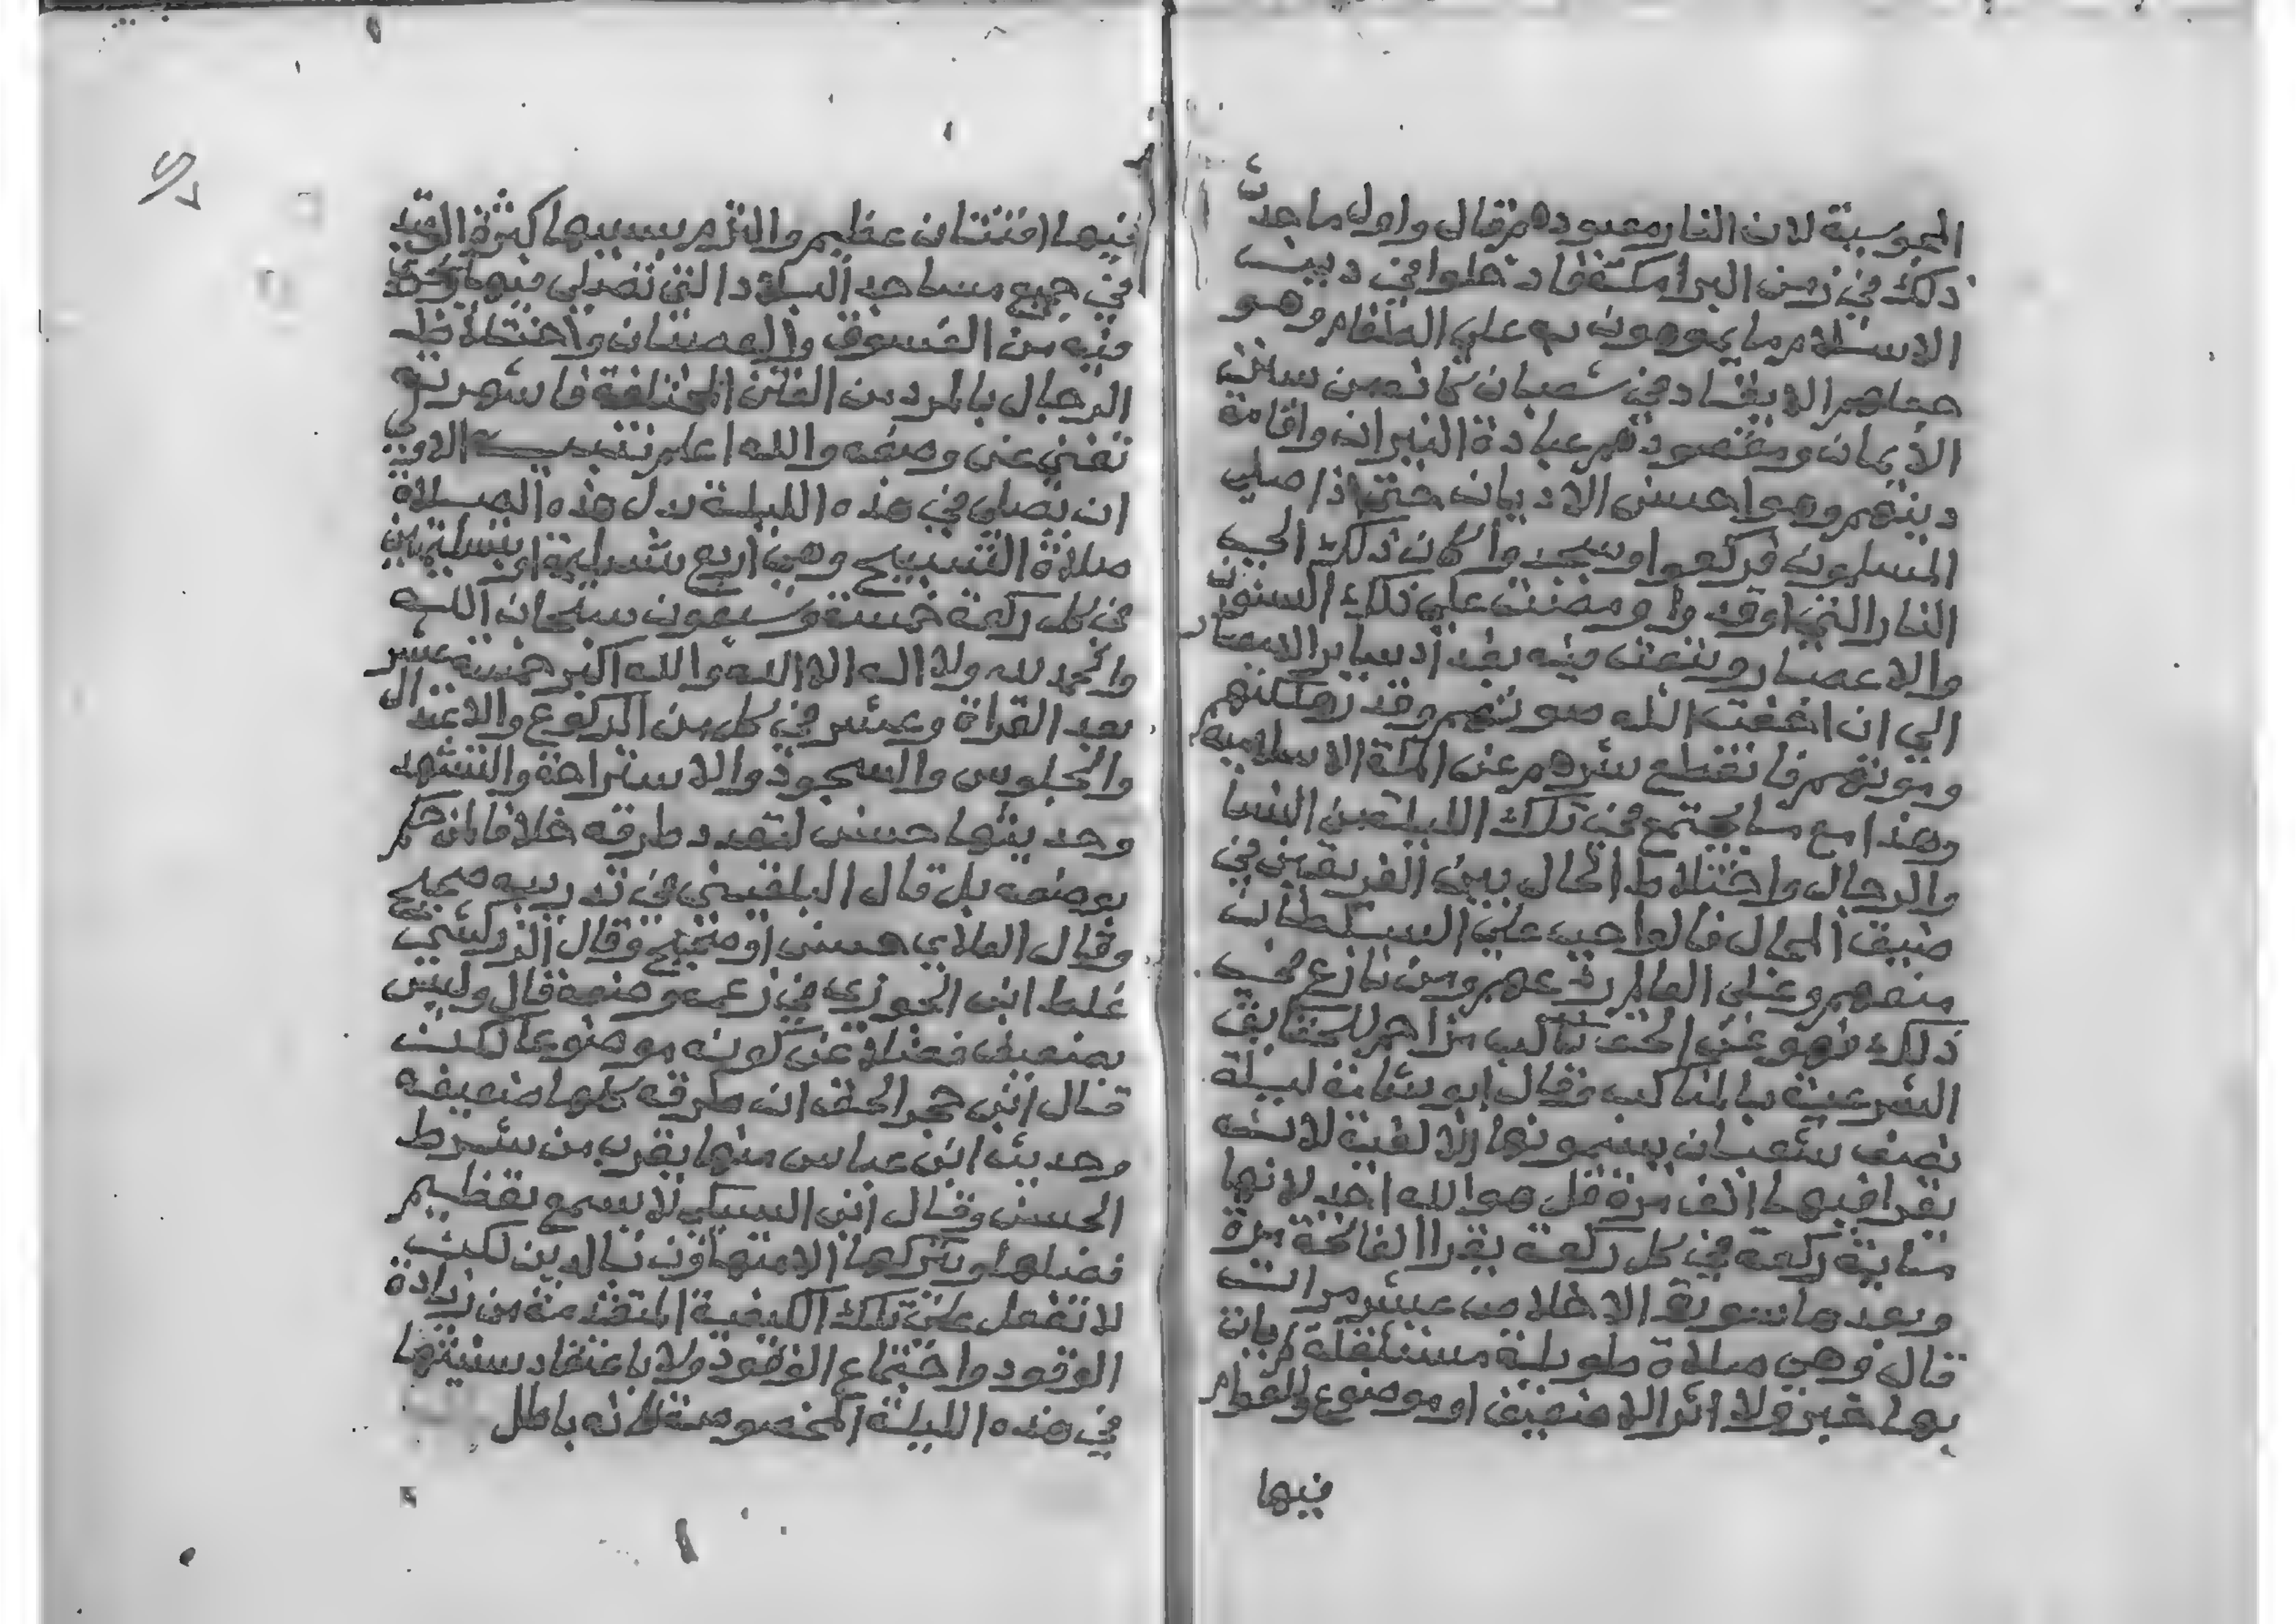 المجوسية لان النار معبودهم قال واول ما حدث
ذلك في زمن البرامكة فادخلوا في دين
الاسلام ما يموهون به علي الطغام وهو
جعلهم الايقاد في شعبان كانه من سنن
الايمان ومقصودهم عبادة النيران واقامة
دينهم وهو اخسن الاديان حتي اذا صلي
المسلمون فركعوا وسجدوا كان ذلك الي
النار التي اوقدوا ومضت علي ذلك السنون
والاعصار وتبعت فيه بغداد ساير الامصار
الي ان اخفت الله صوتهم وقد زمكنهم
وموتهم فانقطع شرهم عن الملة الاسلامية
وهذا مع ما يجتمع في تلك الليلة من النسا
والرجال واختلاط الحال بين الفريقين في
ضيق المجال فالواجب علي السلطان
منعهم وعلي العالم ردعهم ومن نازع في
ذلك فهو عن الحق ناكب مزاحم للحقايق
الشرعية بالمناكب وقال ابو شامة ليلة
نصف شعبان يسمونها الالفية لانه
يقرا فيها الف مرة قل هو الله احد لانها
ماية ركعة في كل ركعة يقرا الفاتحة مرة
وبعدها سورة الاخلاص عشر مرات
قال وهي صلاة طويلة مستثقلة لم يات
بها خبر ولا اثر الا ضعيف او موضوع وللعوام
فيها
فيها افتتان عظيم والتزم بسببها كثرة الوقيد
في جميع مساجد البلاد التي تصلي فيها
فيه من الفسوق والعصيان واختلاط
الرجال بالمرد من الفتن المختلفة فا شهرته
تغني عن وصفه والله اعلم تنبيه الاولي
ان يصلي في هذه الليلة بدل هذه الصلاة
صلاة التسبيح وهي اربع بتسليمة او بتسليمتين
في كل ركعة خمسة وسبعون سبحان الله
والحمد لله ولا اله الا الله والله اكبر خمسة عشر
بعد القراة وعشر في كل من الركوع والاعتدال
والجلوس والسجود والاستراحة والتشهد
وحديثها حسن لتعدد طرقه خلافا لمن حكم
بوضعه بل قال البلقيني في تدريبه صحيح
وقال العلاي حسن او صحيح وقال الزركشي
غلط ابن الجوزي في زعمه وضعه قال وليس
بضعيف فضلا عن كونه موضوعا لكن
قال ابن حجر الحق ان طرقه كلها ضعيفه
وحديث ابن عباس منها يقرب من شرط
الحسن وقال ابن السبكي لا يسمع بعظيم
فضلها ويتركها الا متهاون بالدين لكن
لا تفعل علي تلك الكيفية المتقدمة من زيادة
الوقود واجتماع الوفود ولا باعتقاد سنيتها
في هذه الليلة المخصوصة لانه باطل